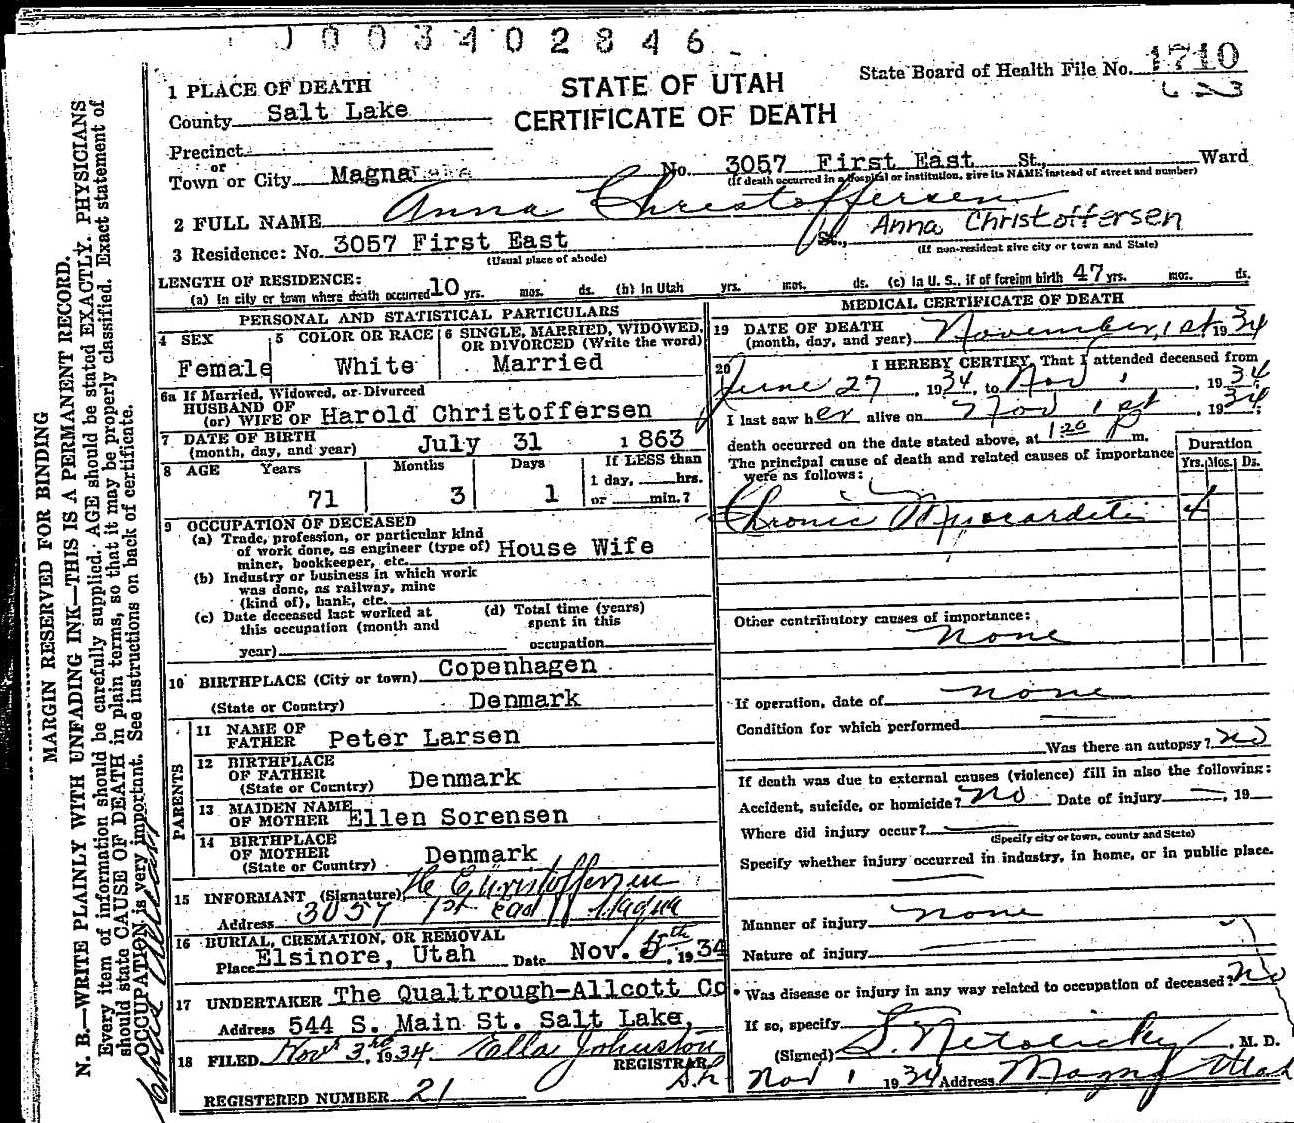 J003402846
1 PLACE OF DEATH
STATE OF UTAH
CERTIFICATE OF DEATH
State Board of Health File No. 1710
623
County Salt Lake
Precinct
or
Town or City Magna
No. 3057 First East St., Ward
(If death occurred in a hospital or institution, give its NAME instead of street and number)
2 FULL NAME Anna Christoffersen
Anna Christoffersen
3 Residence: No. 3057 First East St.,
(Usual place of abode)
(If non-resident give city or town and State)
LENGTH OF RESIDENCE:
(a) In city or town where death occurred 10 yrs. mos. ds. (b) In Utah yrs. mos. ds. (c) In U. S., if of foreign birth 47 yrs. mos. ds.
PERSONAL AND STATISTICAL PARTICULARS
4 SEX
Female
5 COLOR OR RACE
White
6 SINGLE, MARRIED, WIDOWED, OR DIVORCED (Write the word)
Married
6a If Married, Widowed, or Divorced
HUSBAND OF
(or) WIFE OF Harold Christoffersen
7 DATE OF BIRTH
(month, day, and year) July 31 1863
8 AGE Years Months Days If LESS than
71 3 1
1 day, hrs.
or min.?
9 OCCUPATION OF DECEASED
(a) Trade, profession, or particular kind
of work done, as engineer (type of)
miner, bookkeeper, etc. House Wife
(b) Industry or business in which work
was done, as railway, mine
(kind of), bank, etc.
(c) Date deceased last worked at
this occupation (month and
year)
(d) Total time (years)
spent in this
occupation
10 BIRTHPLACE (City or town) Copenhagen
(State or Country) Denmark
PARENTS
11 NAME OF
FATHER Peter Larsen
12 BIRTHPLACE
OF FATHER
(State or Country) Denmark
13 MAIDEN NAME
OF MOTHER Ellen Sorensen
14 BIRTHPLACE
OF MOTHER
(State or Country) Denmark
15 INFORMANT (Signature) H Christoffersen
Address 3057 1st East Magna
16 BURIAL, CREMATION, OR REMOVAL
Place Elsinore, Utah Date Nov. 5th, 1934
17 UNDERTAKER The Qualtrough-Allcott Co
Address 544 S. Main St. Salt Lake,
18 FILED Nov 3rd, 1934 Ella Johnston
REGISTRAR
REGISTERED NUMBER 21
MEDICAL CERTIFICATE OF DEATH
19 DATE OF DEATH
(month, day, and year) November 1st 1934
20 I HEREBY CERTIFY, That I attended deceased from
June 27, 1934, to Nov 1, 1934
I last saw her alive on Nov 1st, 1934;
death occurred on the date stated above, at 1 20 P m.
The principal cause of death and related causes of importance
were as follows:
Duration
Yrs. Mos. Ds.
Chronic Myocarditis 4
Other contributory causes of importance:
none
If operation, date of none
Condition for which performed
Was there an autopsy? no
If death was due to external causes (violence) fill in also the following:
Accident, suicide, or homicide? no Date of injury , 19
Where did injury occur?
(Specify city or town, county and State)
Specify whether injury occurred in industry, in home, or in public place.
Manner of injury none
Nature of injury
Was disease or injury in any way related to occupation of deceased? no
If so, specify
(Signed) S. Netolicky, M. D.
Nov 1 1934 Address Magna Utah
MARGIN RESERVED FOR BINDING
N. B.—WRITE PLAINLY WITH UNFADING INK—THIS IS A PERMANENT RECORD.
Every item of information should be carefully supplied. AGE should be stated EXACTLY. PHYSICIANS
should state CAUSE OF DEATH in plain terms, so that it may be properly classified. Exact statement of
OCCUPATION is very important. See instructions on back of certificate.